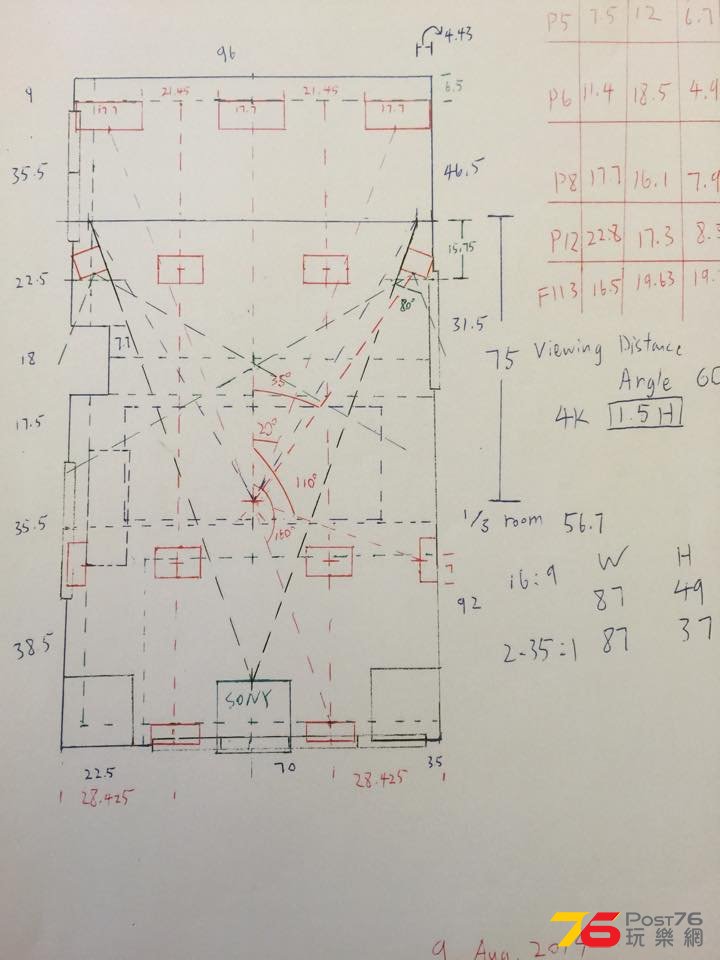 P5 7.5 12 6.7
96
4.43
9
21.45
21.45
6.5
17.7
17.7
17.7
P6 11.4 18.5 4.9
35.5
46.5
P8 17.7 16.1 7.9
P12 22.8 17.3 8.3
15.75
F113 16.5 19.63 19.
22.5
80°
31.5
7.7
18
35°
75
Viewing Distance
Angle 60
4K 1.5H
17.5
110°
160°
1/3 room 56.7
35.5
7
92
W H
16:9 87 49
2.35:1 87 37
38.5
SONY
22.5
70
35
28.425
28.425
Post76
玩樂網
9 Aug. 201